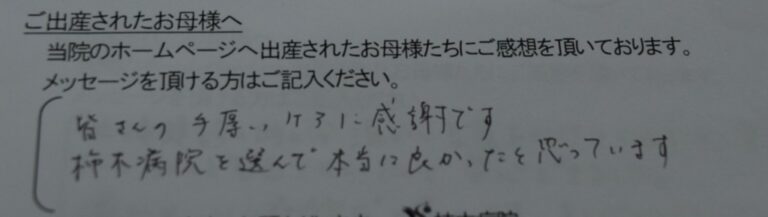 ご出産されたお母様へ
当院のホームページへ出産されたお母様たちにご感想を頂いております。
メッセージを頂ける方はご記入ください。
皆さんの手厚いケアに感謝です
柿木病院を選んで本当に良かったと思っています